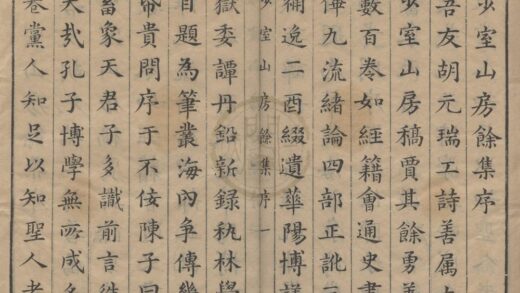 少室山房餘集序
吾友胡元瑞工詩善属
少室山房稿賈其餘勇
數百卷如經籍會通史書
九流緒論四部正訛
補逸二酉綴遺華陽博議
少室山房餘集序一
獄委譚丹鉛新録秇林學
自題為筆叢海內争傳幾
帝貴問序于不佞陳子曰
畜象天君子多識前言徃
大哉孔子博學無所成名
巷黨人知足以知聖人者